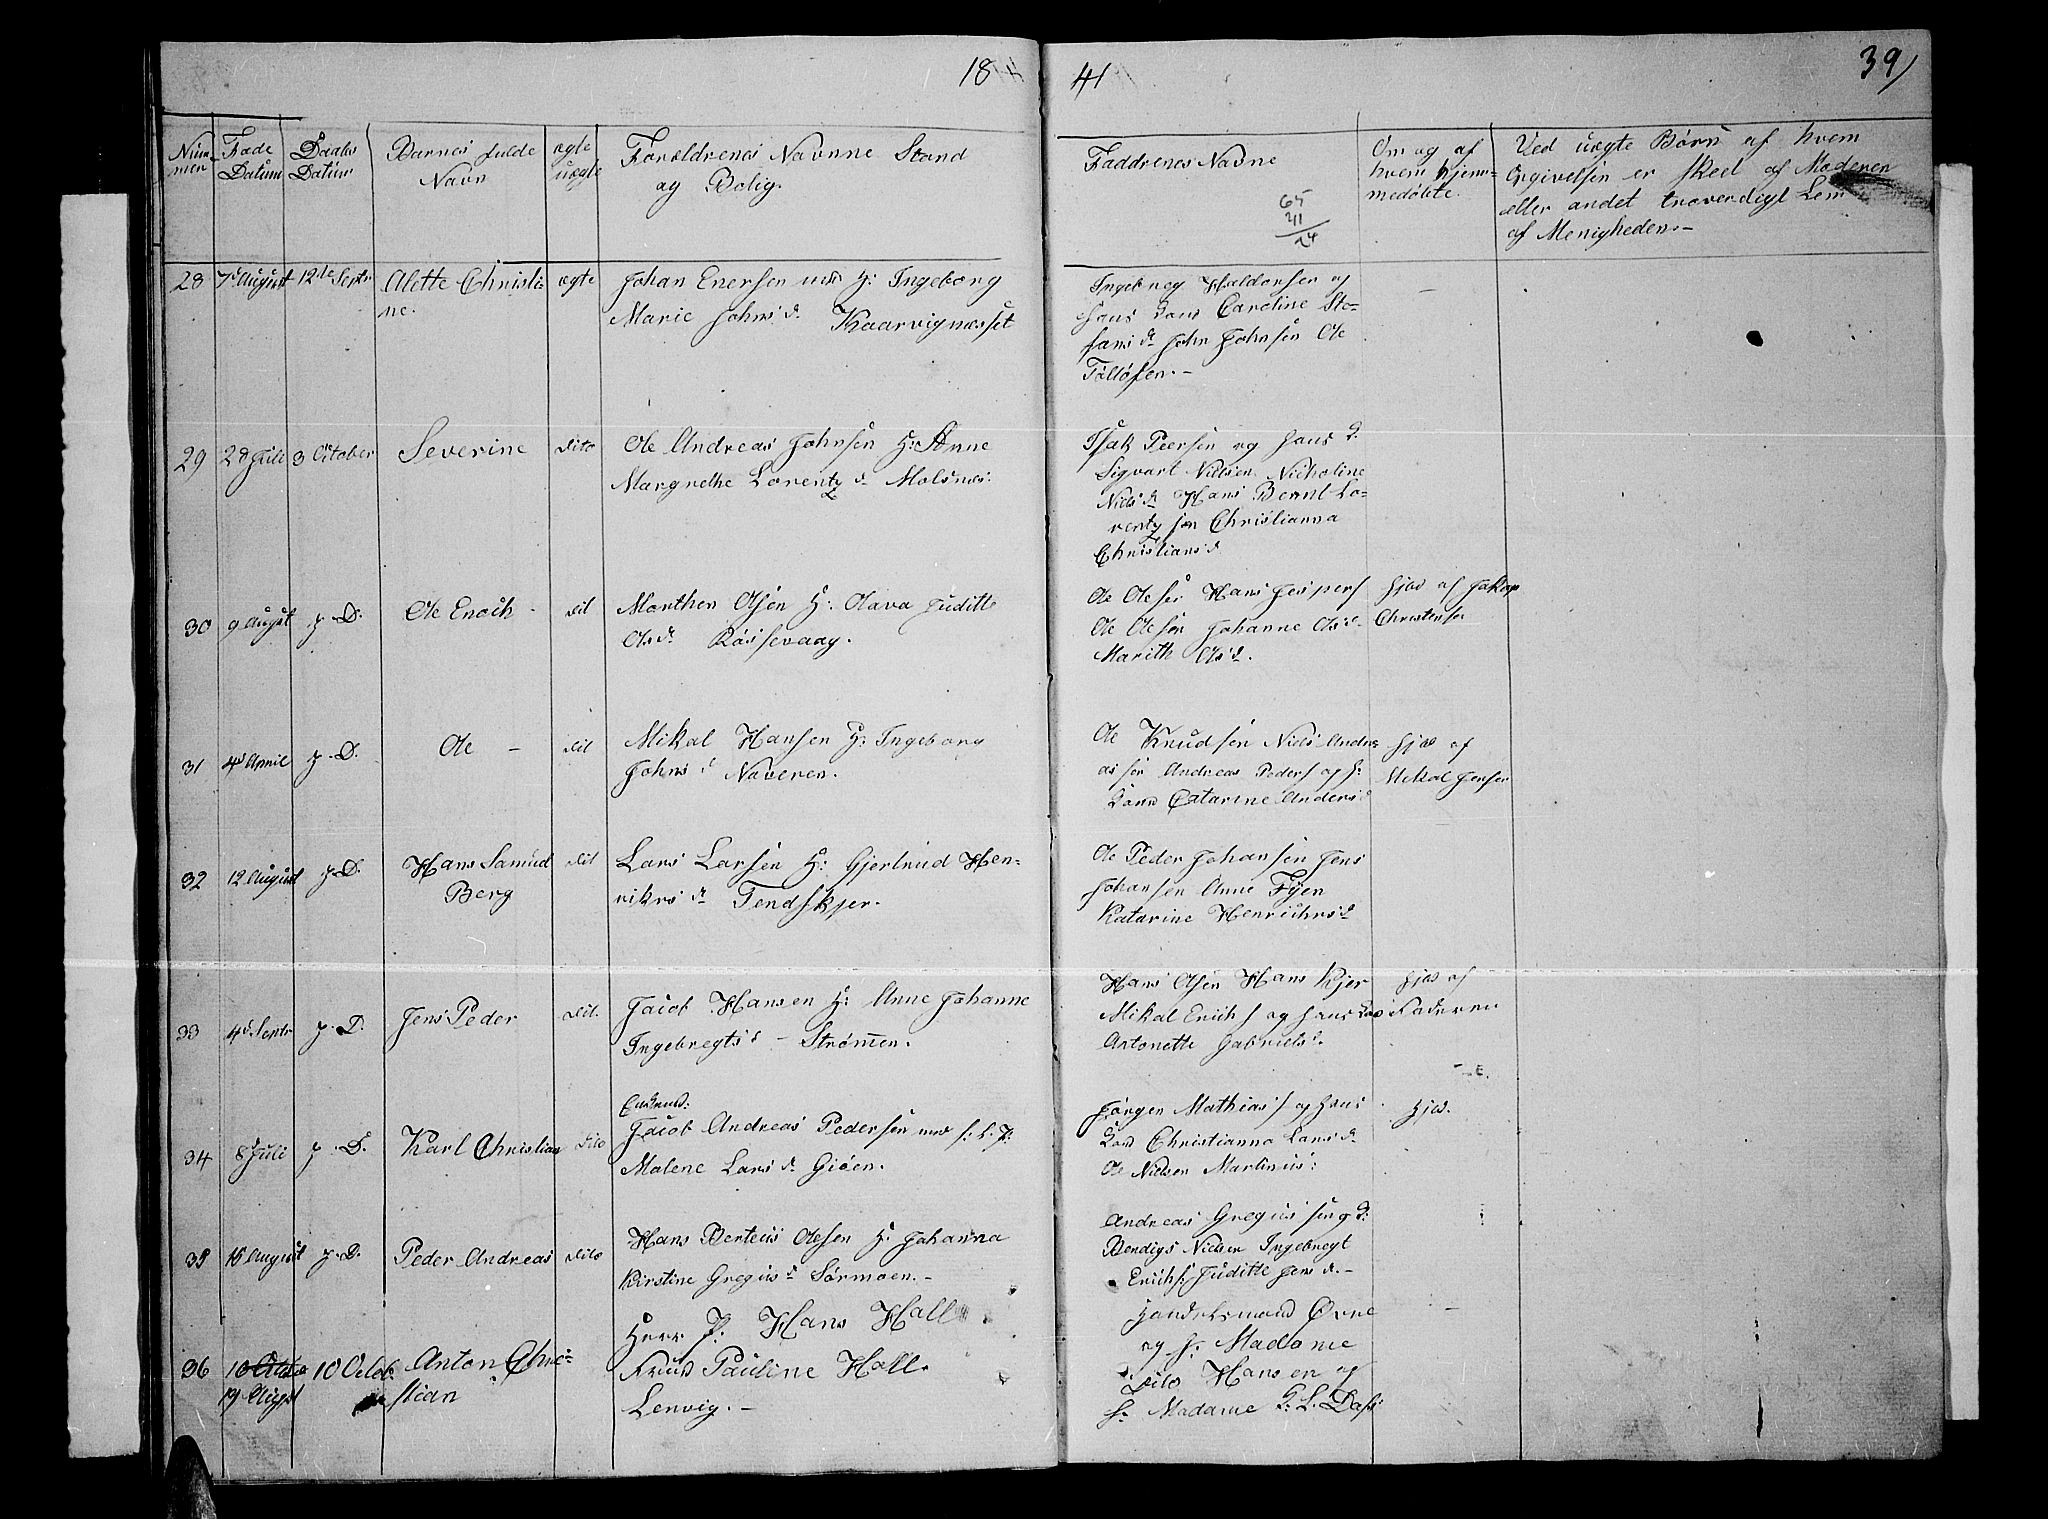 18
41
39
Num-
mer
Føde
Datum
Daabs
Datum
Barnes fulde
Navn
ægte
uægte
Forældrenes Navnne Stand
og Bolig.
Faddrenes Navne
65
41
24
Om og af
hvem hjem-
medøbte.
Ved uægte Børn af hvem
Opgivelsen er skeet af Moderen
eller andet troverdigt Lem
af Menigheden.-
28 7d August 12te Septr Alette Christi-
ne.
ægte
Johan Enersen H: Ingeborg
Marie Johns d. Kaarvignesset
Ingebreg Haldorsen og
hans Caroline Ste-
fans d John Johnsen Ole
Tolløfsen.-
29 2d Juli 3 October Severine dito
Ole Andreas Johnsen H: Anne
Margrethe Lorentz d. Molsnes.
Isak Peersen og hans
Sigvart Nilsen Nicholine
Niels d Hans Bernt Lo-
rentz sen Christianna
Christians d
30 9 August p. D. Ole Enoch - dit
Morthen Olsen H: Olava Juditte
Ols d. Røssevaag.
Ole Olesen Hans Jespers
Ole Olesen Johanne Ols d.
Marith Ols d.
hjøb af Jakop
Christensen
31 4d April p. D. Ole - dit
Mikal Hansen H: Ingeborg
Johns d Naveren.
Ole Knudsen Niels Andre-
as sen Andreas Peders og H:
Catarine Anders d
hjøb af
Mikal Jensen
32 12 August p. D. Hans Samuel
Berg
dit
Lars Larsen H: Gjertrud Hen-
rikrs d. Tendskjer.
Ole Peder Johansen Jens
Johansen Anne Fyen
Katarine Henrichrs d
33 4d Septr p. D. Jens Peder dit.
Jacob Hansen H: Anne Johanne
Ingebregts d - Strømen.
Hans Olsen Hans Kjer
Mikal Erichs og hans
Antonette Gabriels d.
hjøb af
Faderen
34 8 Juli p. D. Karl Christian dito
Jacob Andreas Pedersen
Malene Lars d. Giøen.
Jørgen Mathias og hans
Christianna Lars d.
Ole Nielsen Martinus:
hjøb.
35 15 August p. D. Peder Andreas dito
Hans Berteus Olesen H: Johanna
Kirstine Gregus d. Sørmoen.-
Andreas Gregus sen
Bendigs Nielsen Ingebregt
Erichs: Juditte Jens d.-
36 10 October
19 August
10 Octob. Anton Chri-
stian
Herr P: Hans Hall
Frue Pauline Hall.
Lenvig.-
Handelsmand Øvre
og fr. Madame
dito Hansen og
fr. Madame G: L. Dass: